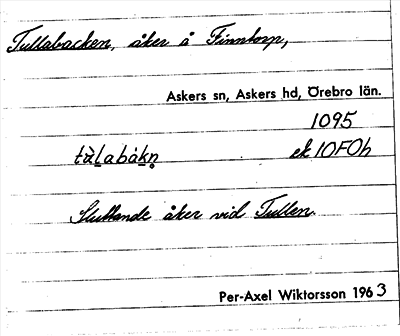 Tullabacken, åker å Finntorp,
Askers sn, Askers hd, Örebro län.
1095
tù̀labákn̥ ek 10F0h
Sluttande åker vid Tullen.
Per-Axel Wiktorsson 1963